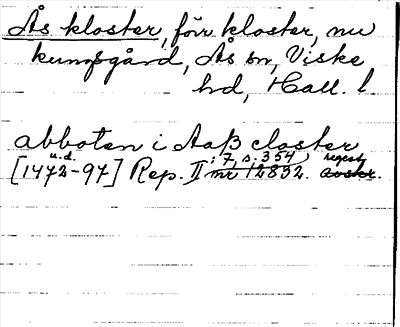 Ås kloster, förr kloster, nu
kungsgård, Ås sn, Viske
hd, Hall. l
abboten i Aaß closter
u.d. : 7, s. 354 regest
[1472-97] Rep. II nr 12832. avskr.